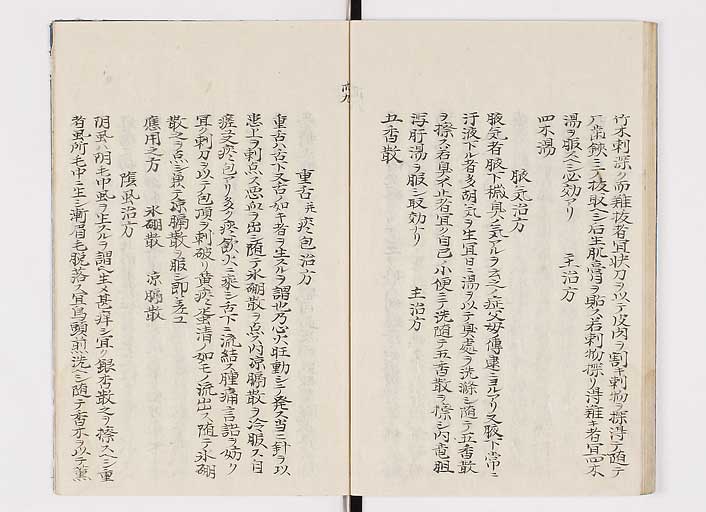 竹木刺深ク而難抜者宜状刀ヲ以テ皮肉ヲ割キ刺物ヲ探得テ随テ
尺歯鋏ミテ抜取シ后生肌膏ヲ貼ス若刺物探リ得難キ者宜四木
湯ヲ服スシ必効アリ　　主治方
四木湯
腋気治方
腋気者腋下穢臭ノ気アルヲ云之症父母傳逮ニヨルアリ又腋下常ニ
汗液下ル者多胡気ヲ生宜日ニ湯ヲ以テ臭處ヲ洗滌シ随テ五香散
ヲ擦ス若臭不止者宜ク自己ノ小便ニテ洗随テ五香散ヲ擦シ内竜胆
瀉肝湯ヲ服シ取効ナリ　　主治方
五香散
重舌並痰包治方
重舌ハ舌下又舌ノ如キ者ヲ生スルヲ謂也乃心火旺動シテ発ス当三針ヲ以
患上ヲ刺点ス悪血ヲ出シ随テ氷硼散ヲ点ス内涼膈散ヲ冷服ス日
瘥又痰包アリ多ク痰飲火ニ乗シ舌下ニ流結ス腫痛言語ヲ妨ク
宜ク刺刀ヲ以テ包頂ヲ刺破リ黄痰蛋清ノ如モノ流出ス随テ氷硼
散之ヲ点シ更テ涼膈散ヲ服シ即差ユ
應用之方　氷硼散　涼膈散
陰虱治方
陰虱ハ陰毛中虱ヲ生スルヲ謂ヘ生メ甚痒シ宜ク銀杏散之ヲ擦スヘシ重
者虱所毛中ニ生シ漸眉毛脱落ス宜烏頭煎洗シ随テ香木ヲ以テ薫